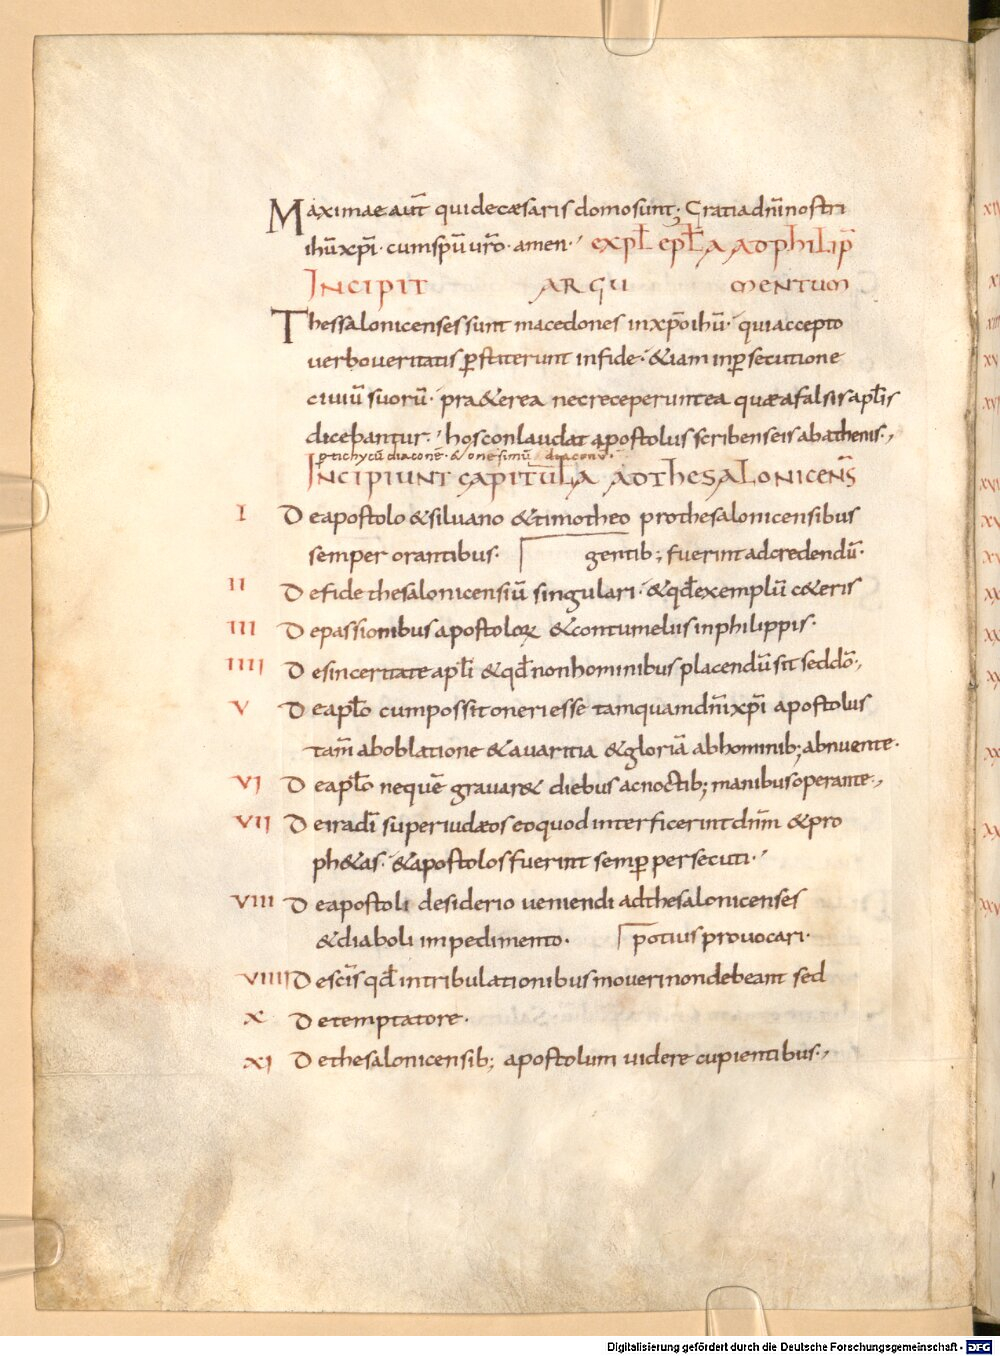 Maximae aut̄ qui de cæsaris domo sunt; Gratia dn̄i nostri
ihū xp̄i · cum sp̄u ur̄o · amen ·
expl̄ epl̄a ad philip̄
INCIPIT ARGUMENTUM
Thessalonicenses sunt macedones in xp̄o ihū · qui accepto
verbo veritatis ꝑstiterunt in fide · & iam in ꝑsecutione
civiū suorū · pra&erea nec receperunt ea quæ a falsis apl̄is
dicebantur · hos conlaudat apostolus scribens eis ab athenis ·,
ꝑ tichycū diaconē · & onesimū diaconū ·
INCIPIUNT CAPITULA AD THESALONICENS̄
I De apostolo & siluano & timotheo pro thesalonicensibus
semper orantibus · gentib; fuerint ad credendū ·
II De fide thesalonicensiū singulari · & qd̄ exemplū c&eris
III De passionibus apostoloꝝ & contumeliis in philippis ·
IIII De sinceritate apl̄i & qd̄ non hominibus placendū sit sed dō ·,
V De apl̄o cum possit oneri esse tamquam dn̄i xp̄i apostolus
tam̄ ab oblatione & avaritia & gloriā ab hominib; abnuente ·
VI De apl̄o nequē gravar& diebus ac noctib; manibus operante ·,
VII De ira dī super iudæos eo quod interficerint dn̄m & pro
ph&as · & apostolos fuerint semꝑ persecuti ·
VIII De apostoli desiderio veniendi ad thesalonicenses
& diaboli impedimento · potius provocari ·
VIIII De sc̄is qd̄ in tribulationibus moveri non debeant sed
X De temptatore ·
XI De thesalonicensib; apostolum videre cupientibus ·,
Digitalisierung gefördert durch die Deutsche Forschungsgemeinschaft · DFG